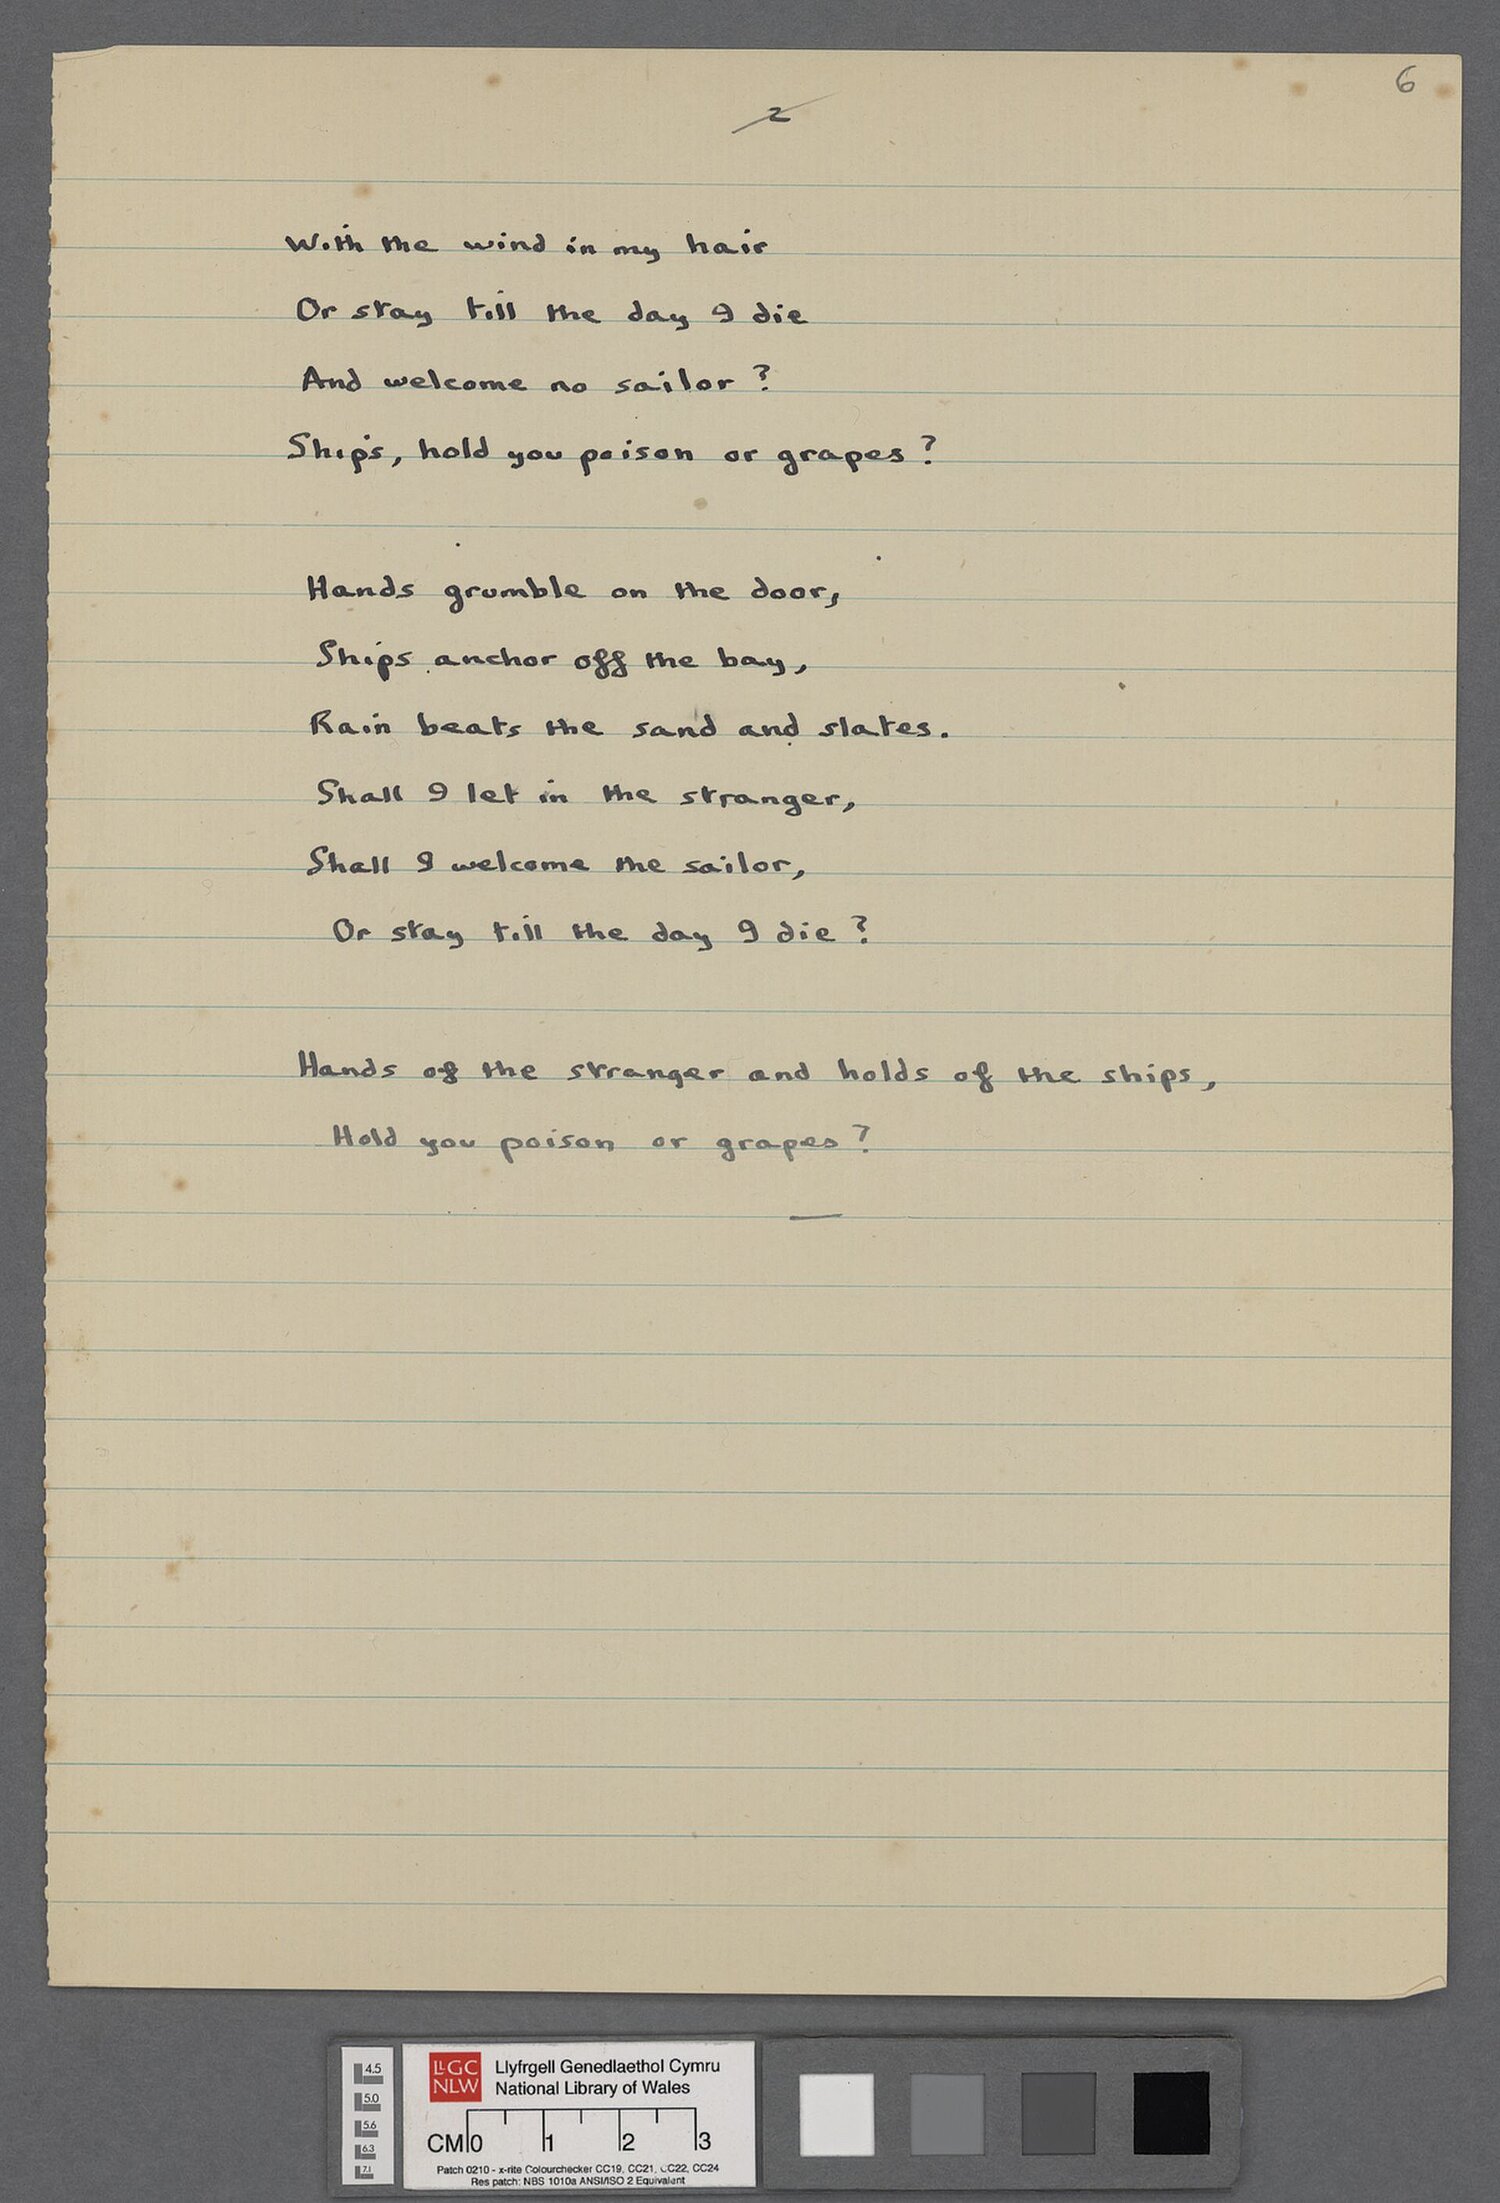 6
2
With the wind in my hair
Or stay till the day I die
And welcome no sailor?
Ships, hold you poison or grapes?
Hands grumble on the door,
Ships anchor off the bay,
Rain beats the sand and slates.
Shall I let in the stranger,
Shall I welcome the sailor,
Or stay till the day I die?
Hands of the stranger and holds of the ships,
Hold you poison or grapes?
4.5
5.0
5.6
6.3
7.1
LLGC
NLW
Llyfrgell Genedlaethol Cymru
National Library of Wales
CM 0 1 2 3
Patch 0210 - x-rite Colourchecker CC19, CC21, CC22, CC24
Res patch: NBS 1010a ANSI/ISO 2 Equivalent